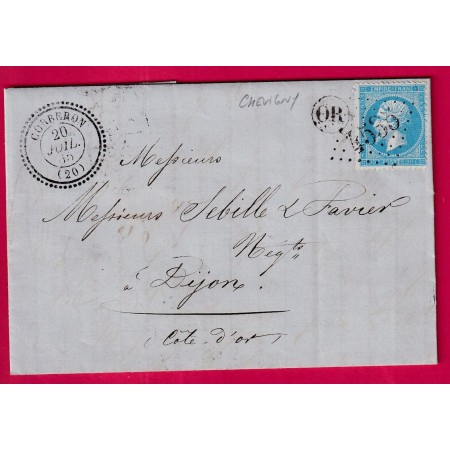 CHEVIGNY
CORBERON
20
JUIL.
65
(20)
OR
EMPIRE FRANC
Messieurs
Messieurs Sebille & Favier
Negts
à Dijon
(Côte-d'or)